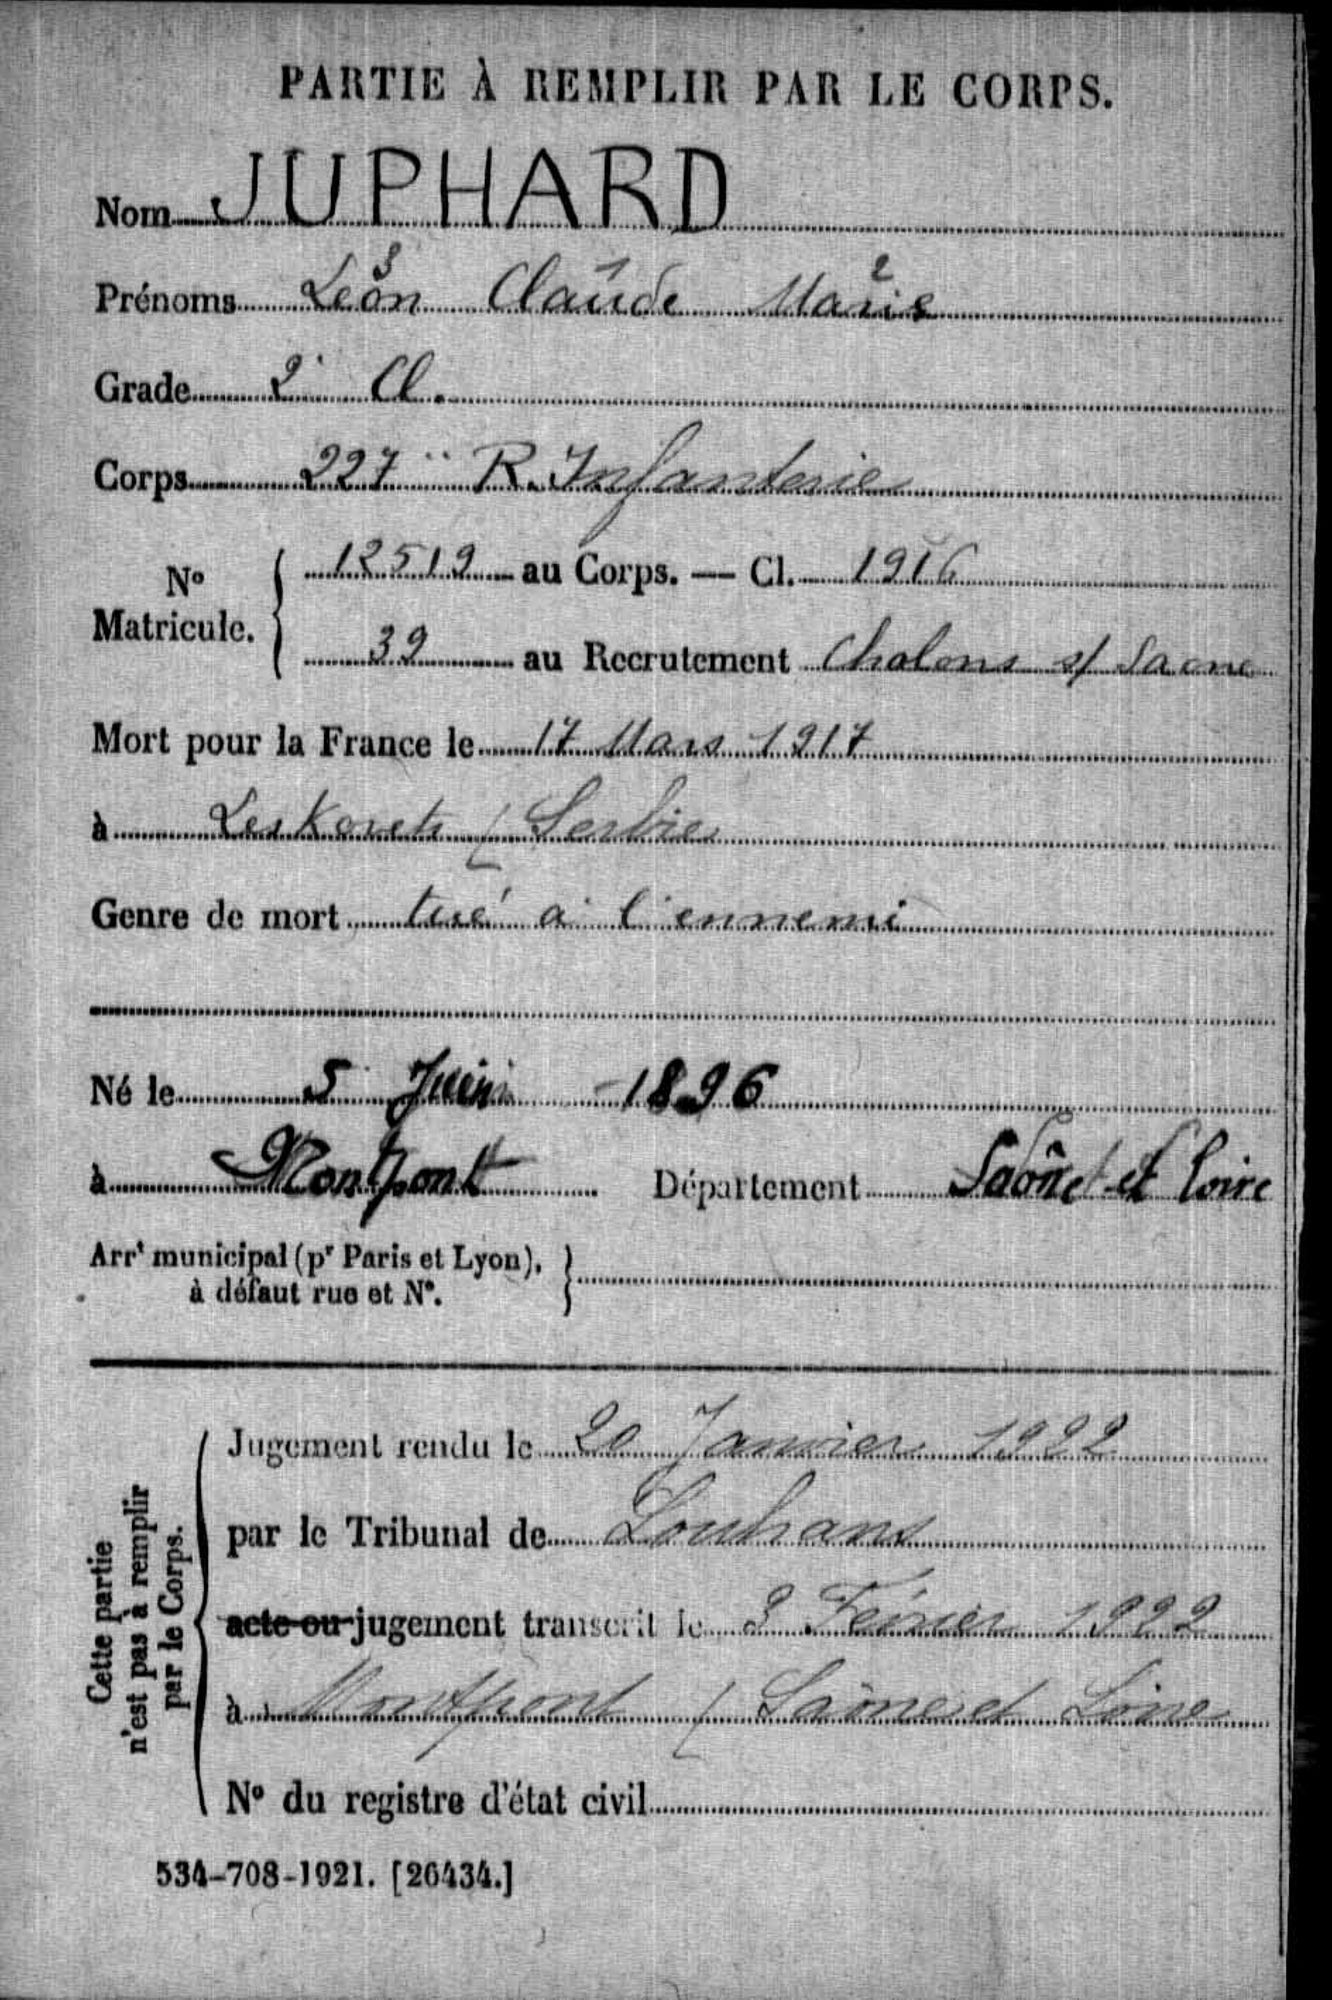 PARTIE À REMPLIR PAR LE CORPS.
Nom JUPHARD
3 1 2
Prénoms Léon Claude Marie
Grade 2e Cl.
Corps 227e R. Infanterie
No Matricule. 12519 au Corps. — Cl. 1916
39 au Recrutement Chalons s/ Saone
Mort pour la France le 17 Mars 1917
à Leskovets / Serbie
Genre de mort tué à l'ennemi
Né le 5 Juin 1896
à Montpont Département Saône et Loire
Arrt municipal (pr Paris et Lyon),
à défaut rue et No.
Cette partie
n'est pas à remplir
par le Corps.
Jugement rendu le 20 Janvier 1922
par le Tribunal de Louhans
acte ou jugement transcrit le 3 Février 1922
à Montpont / Saône et Loire
No du registre d'état civil
534-708-1921. [26434.]